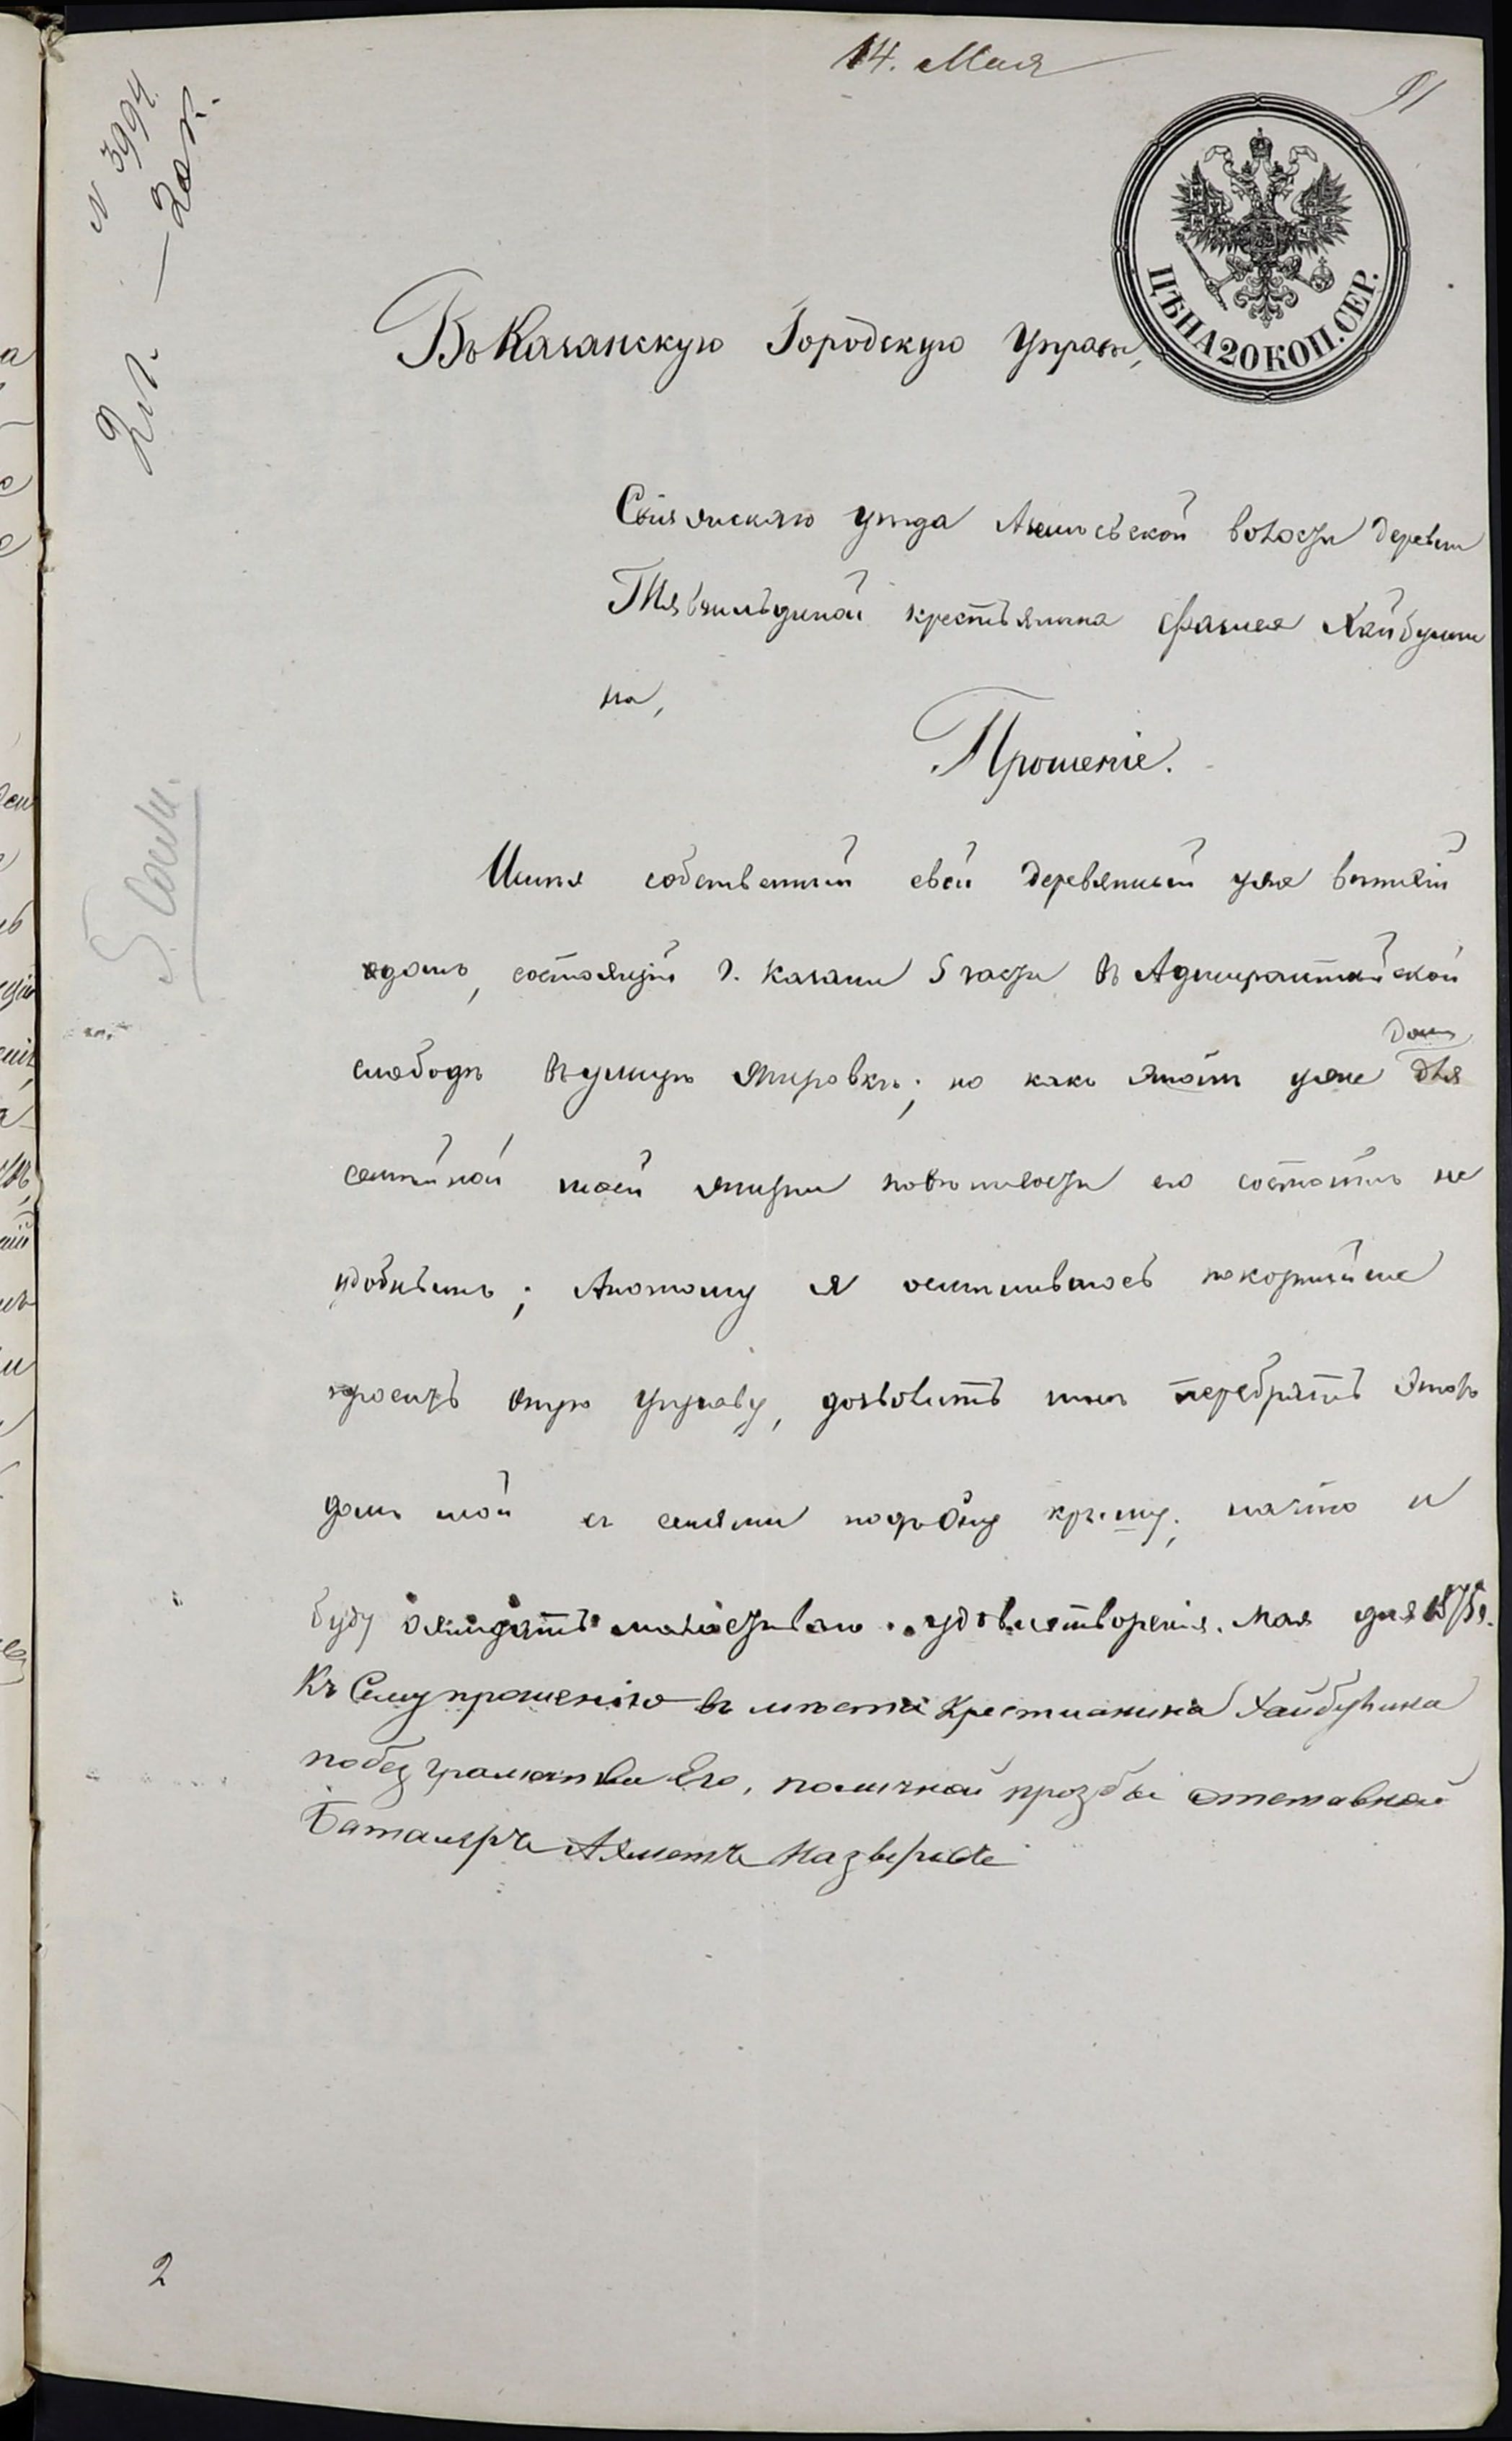 14. Мая
91
N 3994.
ЦѢНА 20 КОП. СЕР.
Въ Казанскую Городскую Управу,
Свіяжскаго уѣзда волости деревни
крестьянина Хайбулли
на,
Прошеніе.
Имѣя собственный свой деревянный уже ветхій
домъ, состоящій г. Казани 5 части въ Адмиралтейской
слободѣ въ улицѣ Жировкѣ; но какъ этотъ уже домъ для
семейной моей жизни по ветхости его состоитъ не
удобнымъ; Апотому я осмѣливаюсь покорнѣйше
просить оную управу, дозволить мнѣ перебрать этотъ
домъ мой съ сенями подъ одну крышу; на что и
буду ожидать милостиваго удовлетворенія. Мая дня 1875 г.
Къ Сему прошенію въ мѣсто Крестианина Хайбулина
по без грамотству Его, по личной прозбѣ отставной
Баталеръ Ахметъ
2